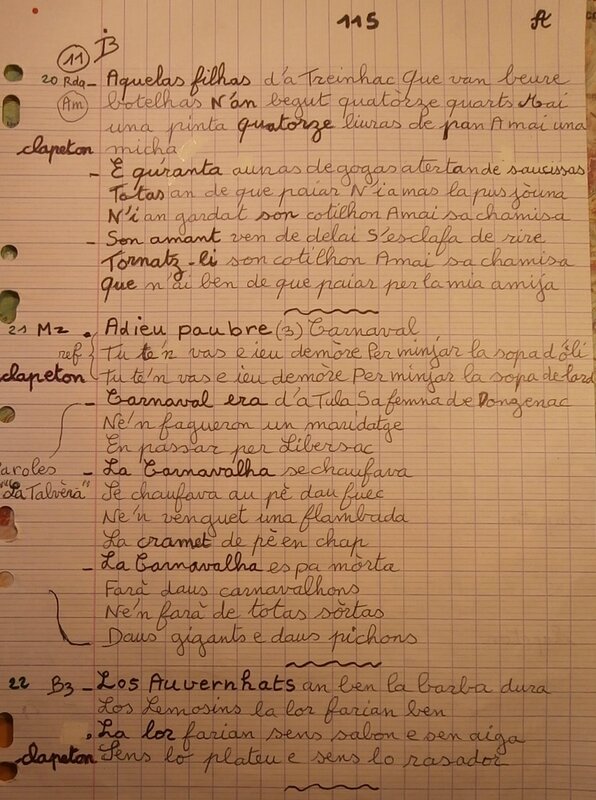 115 A
11 B
20 Rda - Aquelas filhas d'a Treinhac Que van beure
Am botelhas N'án begut quatòrze quarts Mai
una pinta quatorze liuras de pan A mai una
clapeton micha
- E quranta aunas de gogas atertan de saucissas
Totas an de que paiar N'i a mas la pus jòuna
N'i an gardat son cotilhon A mai sa chamisa
- Son amant ven de delai S'esclafa de rire
Tornatz-li son cotilhon A mai sa chamisa
Que n'ai ben de que paiar per la mia amija
21 Mz . Adieu paubre (3) Carnaval
ref { Tu te'n vas e ieu demòre Per minjar la sopa d'òli
clapeton Tu te'n vas e ieu demòre Per minjar la sopa de lard
- Carnaval era d'a Tula Sa femna de Donzenac
Ne'n fagueron un maridatge
En passar per Libersac
Paroles - La Carnavalha se chaufava
"La Talvèra" Se chaufava au pè dau fuec
Ne'n venguet una flambada
La cramet de pè en chap
- La Carnavalha es pa mòrta
Farà daus carnavalhons
Ne'n farà de totas sòrtas
- Daus gigants e daus pichons
22 B3 - Los Auvernhats an ben la barba dura
Los Lemosins la lor farian ben
. La lor farian sens sabon e sen aiga
clapeton Sens lo plateu e sens lo rasador